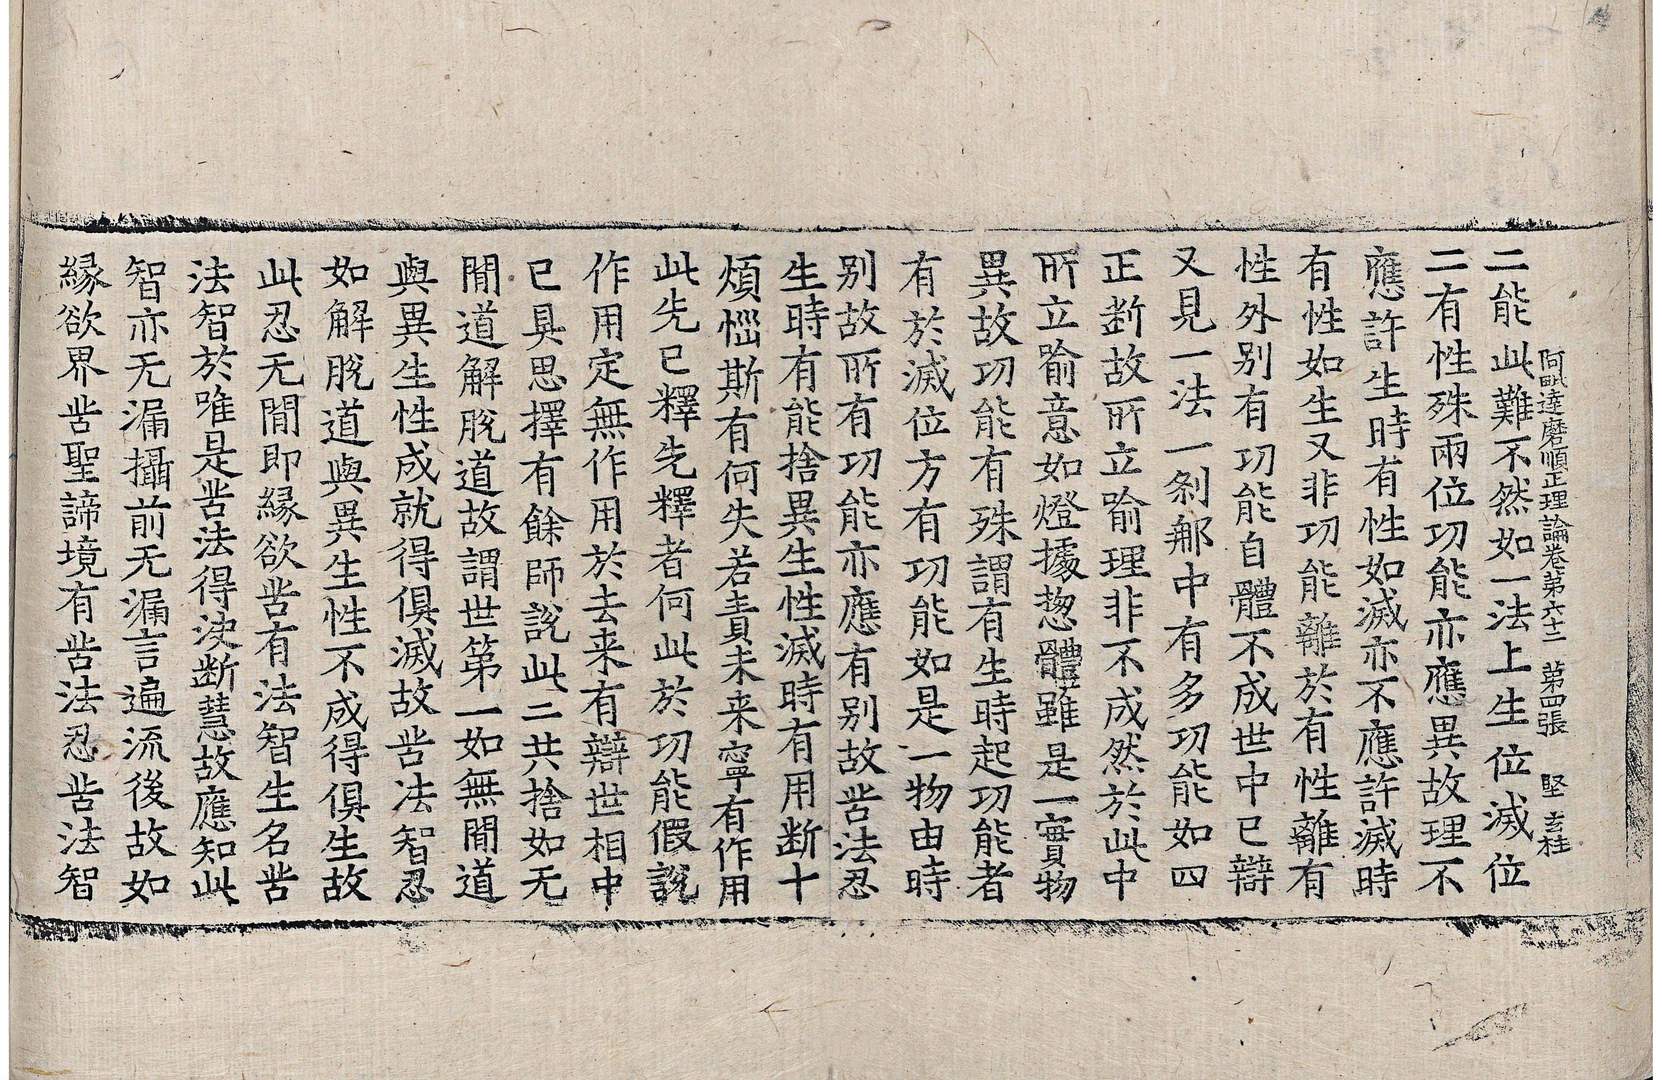 阿毗達磨順正理論卷第六十二 第四張 堅 玄桂
二能此難不然如一法上生位滅位
二有性殊兩位功能亦應異故理不
應許生時有性如滅亦不應許滅時
有性如生又非功能離於有性離有
性外別有功能自體不成世中已辯
又見一法一剎那中有多功能如四
正斷故所立喻理非不成然於此中
所立喻意如燈據惣體雖是一實物
異故功能有殊謂有生時起功能者
有於滅位方有功能如是一物由時
別故所有功能亦應有別故苦法忍
生時有能捨異生性滅時有用斷十
煩惱斯有何失若責未来寧有作用
此先已釋先釋者何此於功能假說
作用定無作用於去来有辯世相中
已具思擇有餘師說此二共捨如无
閒道解脫道故謂世第一如無閒道
與異生性成就得俱滅故苦法智忍
如解脫道與異生性不成得俱生故
此忍无閒即緣欲苦有法智生名苦
法智於唯是苦法得決斷慧故應知此
智亦无漏攝前无漏言遍流後故如
緣欲界苦聖諦境有苦法忍苦法智